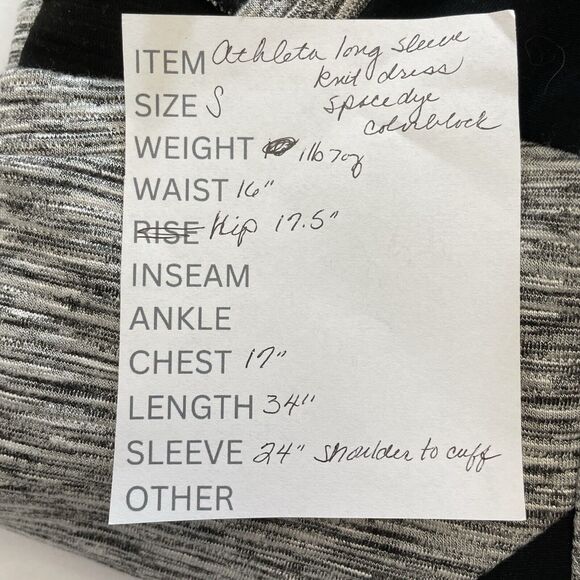 ITEM Athleta long sleeve
knit dress
SIZE S spacedye
colorblock
WEIGHT 1lb 7oz
WAIST 16"
RISE Hip 17.5"
INSEAM
ANKLE
CHEST 17"
LENGTH 34"
SLEEVE 24" shoulder to cuff
OTHER